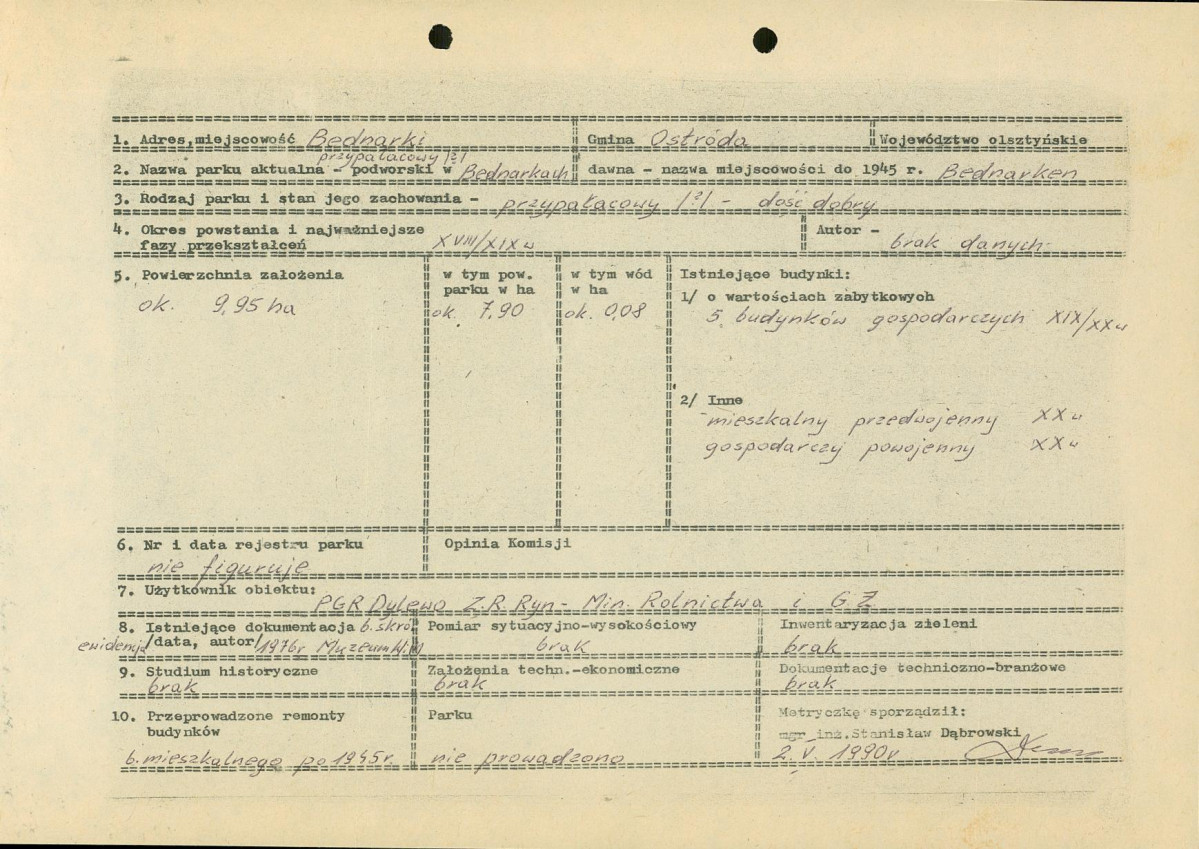 1. Adres,miejscowość Bednarki Gmina Ostróda Województwo olsztyńskie
przypałacowy /?/
2. Nazwa parku aktualna - podworski w Bednarkach dawna - nazwa miejscowości do 1945 r. Bednarken
3. Rodzaj parku i stan jego zachowania - przypałacowy /?/ - dość dobry
4. Okres powstania i najważniejsze fazy przekształceń XVIII/XIX w
Autor - brak danych
5. Powierzchnia założenia
ok. 9,95 ha
w tym pow.
parku w ha
ok. 7,90
w tym wód
w ha
ok. 0,08
Istniejące budynki:
1/ o wartościach zabytkowych
5 budynków gospodarczych XIX/XX w
2/ Inne
mieszkalny przedwojenny XX w
gospodarczy powojenny XX w
6. Nr i data rejestru parku
nie figuruje
Opinia Komisji
7. Użytkownik obiektu:
PGR Dylewo Z.R. Ryn - Min. Rolnictwa i GŻ
8. Istniejące dokumentacja b. skró
ewidencja /data, autor/ 1976r Muzeum
Pomiar sytuacyjno-wysokościowy
brak
Inwentaryzacja zieleni
brak
9. Studium historyczne
brak
Założenia techn.-ekonomiczne
brak
Dokumentacje techniczno-branżowe
brak
10. Przeprowadzone remonty
budynków
b. mieszkalnego po 1945r.
Parku
nie prowadzono
Metryczkę sporządził:
mgr inż.Stanisław Dąbrowski
2. V. 1990r